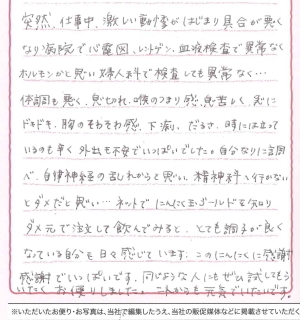 突然、仕事中、激しい動悸がはじまり具合が悪く
なり病院で心電図、レントゲン、血液検査で異常なく
ホルモンかと思い婦人科で検査しても異常なく…
体調も悪く、息切れ、喉のつまり感、息苦しく、常に
ドキドキ、胸のそわそわ感、下痢、だるさ、時には立って
いるのも辛く外出も不安でいっぱいでした。自分なりに調
べ、自律神経の乱れからと思い、精神科へ行かない
とダメだと思い…ネットでにんにく玉ゴールドを知り
ダメ元で注文して飲んでみると、とても調子が良く
なっている自分を日々感じています。このにんにくに感謝
感謝でいっぱいです。同じような人にもぜひ試してもら
いたくお便りしました。これからも元気でいたいです。
※いただいたお便り・お写真は、当社で編集したうえ、当社の販促媒体などに掲載させていただく